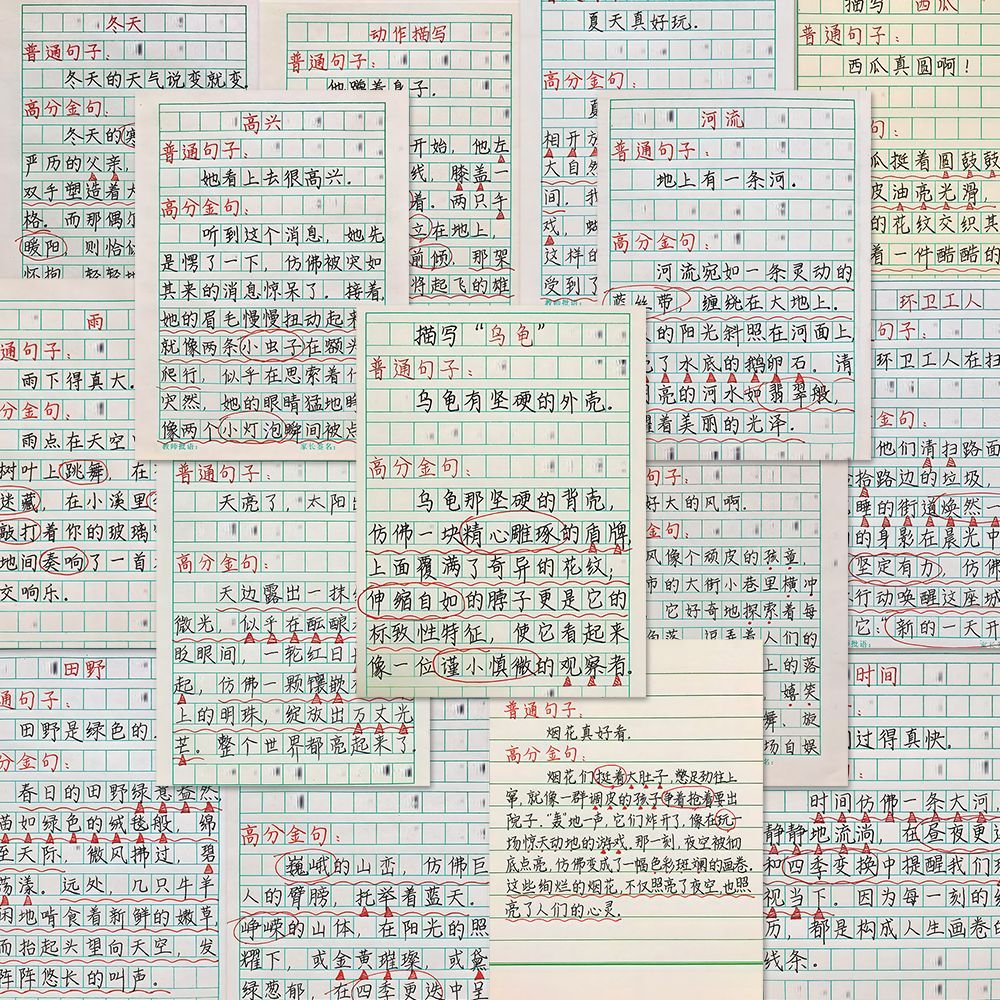 冬天
普通句子:
冬天的天气说变就变.
高分金句:
冬天的寒
严历的父亲,
双手塑造着大
格. 而那偶尔
暖阳, 则恰似
怀抱, 轻轻地
动作描写
普通句子:
他蹲着身子.
开始, 他左
线, 膝盖一
着. 两只手
立在地上,
前倾, 那架
将起飞的雄
夏天真好玩.
高分金句:
夏
相开放
大自然
间, 我
戏,
这样的
受到了
描写 "西瓜"
普通句子:
西瓜真圆啊!
句:
瓜挺着圆鼓鼓
皮油亮光滑,
的花纹交织其
着一件酷酷的
高兴
普通句子:
她看上去很高兴.
高分金句:
听到这个消息, 她先
是愣了一下, 仿佛被突如
其来的消息惊呆了. 接着,
她的眉毛慢慢扭动起来
就像两条小虫子在额头
爬行, 似乎在思索着什
突然, 她的眼睛猛地睁
像两个小灯泡瞬间被点
教师批语: 家长签名:
河流
普通句子:
地上有一条河.
高分金句:
河流宛如一条灵动的
蓝丝带, 缠绕在大地上.
的阳光斜照在河面上,
了水底的鹅卵石. 清
亮的河水如翡翠般,
着美丽的光泽.
雨
通句子:
雨下得真大.
分金句:
雨点在天空中
树叶上跳舞, 在
迷藏, 在小溪里
敲打着你的玻璃
地间奏响了一首
交响乐.
描写 "乌龟"
普通句子:
乌龟有坚硬的外壳.
高分金句:
乌龟那坚硬的背壳,
仿佛一块精心雕琢的盾牌
上面覆满了奇异的花纹;
伸缩自如的脖子更是它的
标致性特征, 使它看起来
像一位谨小慎微的观察者.
环卫工人
句子:
环卫工人在扫
金句:
他们清扫路面
拾路边的垃圾,
睡的街道焕然一
的身影在晨光中
坚定有力, 仿佛
行动唤醒这座城
它: "新的一天开
普通句子:
天亮了, 太阳出
高分金句:
天边露出一抹
微光, 似乎在酝酿
眨眼间, 一轮红日
起, 仿佛一颗镶嵌
上的明珠, 绽放出万丈光
芒. 整个世界都亮起来了.
句子:
好大的风啊.
金句:
风像个顽皮的孩童,
市的大街小巷里横冲
它好奇地探索着每
人们的
上的落
嬉笑
舞, 旋
场自娱
田野
通句子:
田野是绿色的
分金句:
春日的田野绿意盎然
苗如绿色的绒毯般, 绵
至天际, 微风拂过, 碧
荡漾. 远处, 几只牛羊
闲地啃食着新鲜的嫩草,
而抬起头望向天空, 发
阵阵悠长的叫声.
高分金句:
巍峨的山峦, 仿佛巨
人的臂膀, 托举着蓝天.
峥嵘的山体, 在阳光的照
耀下, 或金黄璀璨, 或黛
绿葱郁, 在四季更迭中呈
普通句子:
烟花真好看.
高分金句:
烟花们挺着大肚子, 憋足劲往上
窜, 就像一群调皮的孩子争着抢着要出
院子. "轰"地一声, 它们炸开了, 像在玩一
场惊天动地的游戏, 那一刻, 夜空被彻
底点亮, 仿佛变成了一幅色彩斑斓的画卷.
这些绚烂的烟花, 不仅照亮了夜空, 也照
亮了人们的心灵.
时间
过得真快.
时间仿佛一条大河,
静静地流淌, 在昼夜更
和四季变换中提醒我们
视当下. 因为每一刻的
历, 都是构成人生画卷的
线条.